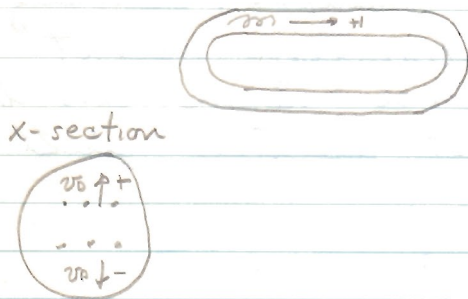 +1
x-section
v_D ↑ +
v_D ↓ -